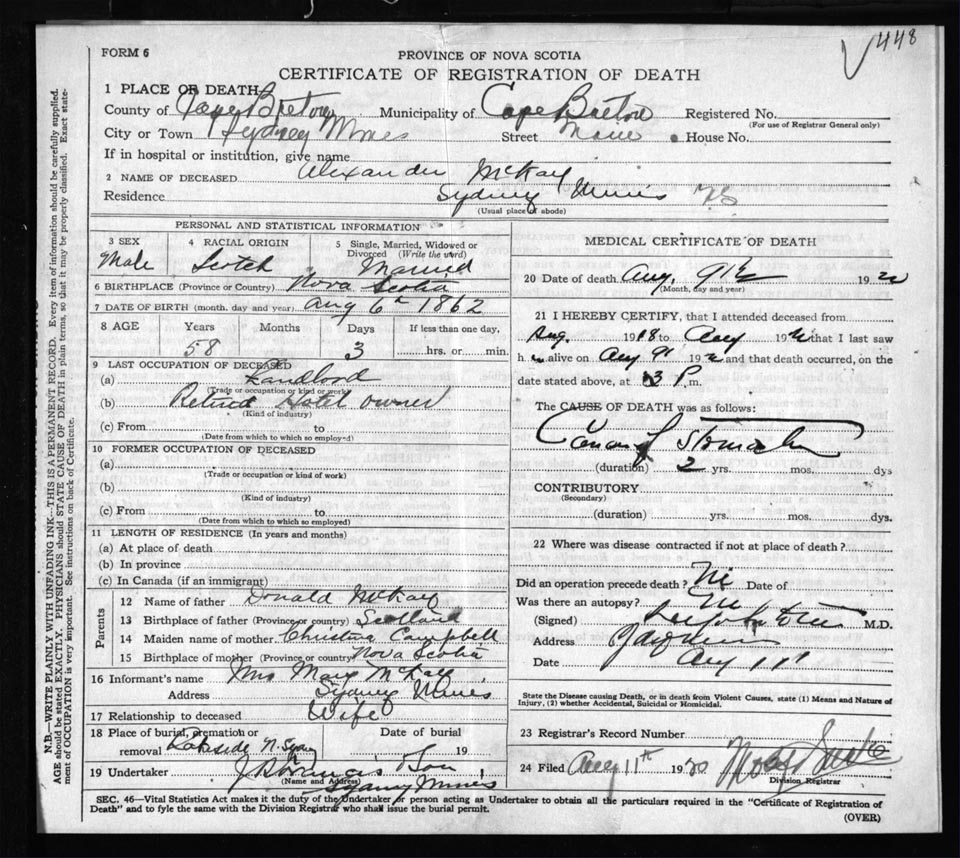 448
FORM 6
PROVINCE OF NOVA SCOTIA
CERTIFICATE OF REGISTRATION OF DEATH
1 PLACE OF DEATH
County of Cape Breton Municipality of Cape Breton Registered No.
(For use of Registrar General only)
City or Town Sydney Mines Street Main House No.
If in hospital or institution, give name
2 NAME OF DECEASED Alexander McKay
Residence Sydney Mines
(Usual place of abode)
PERSONAL AND STATISTICAL INFORMATION
3 SEX Male
4 RACIAL ORIGIN Scotch
5 Single, Married, Widowed or Divorced (Write the word) Married
6 BIRTHPLACE (Province or Country) Nova Scotia
7 DATE OF BIRTH (month, day and year) Aug 6th 1862
8 AGE Years Months Days If less than one day,
58 3 hrs. or min.
9 LAST OCCUPATION OF DECEASED
(a) Landlord
(Trade or occupation or kind of work)
(b) Retired Hotel owner
(Kind of industry)
(c) From to
(Date from which to which so employed)
10 FORMER OCCUPATION OF DECEASED
(a)
(Trade or occupation or kind of work)
(b)
(Kind of industry)
(c) From to
(Date from which to which so employed)
11 LENGTH OF RESIDENCE (In years and months)
(a) At place of death
(b) In province
(c) In Canada (if an immigrant)
Parents
12 Name of father Donald McKay
13 Birthplace of father (Province or country) Scotland
14 Maiden name of mother Christina Campbell
15 Birthplace of mother (Province or country) Nova Scotia
16 Informant's name Mrs Mary McKay
Address Sydney Mines
17 Relationship to deceased Wife
18 Place of burial, cremation or Date of burial
removal N. Sydney 19
19 Undertaker Son
(Name and Address) Sydney Mines
MEDICAL CERTIFICATE OF DEATH
20 Date of death Aug. 9th 1920
(Month, day and year)
21 I HEREBY CERTIFY, that I attended deceased from
Aug. 1918 to Aug 19 that I last saw
h alive on Aug 9th 19 and that death occurred, on the
date stated above, at 3 P. m.
The CAUSE OF DEATH was as follows:
Cancer of Stomach
(duration) 2 yrs. mos. dys
CONTRIBUTORY
(Secondary)
(duration) yrs. mos. dys.
22 Where was disease contracted if not at place of death?
Did an operation precede death? No Date of
Was there an autopsy? No
(Signed) M.D.
Address
Date Aug 11th
State the Disease causing Death, or in death from Violent Causes, state (1) Means and Nature of
Injury, (2) whether Accidental, Suicidal or Homicidal.
23 Registrar's Record Number
24 Filed Aug 11th 1920
Division Registrar
SEC. 46—Vital Statistics Act makes it the duty of the Undertaker or person acting as Undertaker to obtain all the particulars required in the "Certificate of Registration of
Death" and to fyle the same with the Division Registrar who shall issue the burial permit.
(OVER)
N.B.—WRITE PLAINLY WITH UNFADING INK—THIS IS A PERMANENT RECORD. Every item of information should be carefully supplied.
AGE should be stated EXACTLY. PHYSICIANS should STATE CAUSE OF DEATH in plain terms, so that it may be properly classified. Exact state-
ment of OCCUPATION is very important. See instructions on back of Certificate.